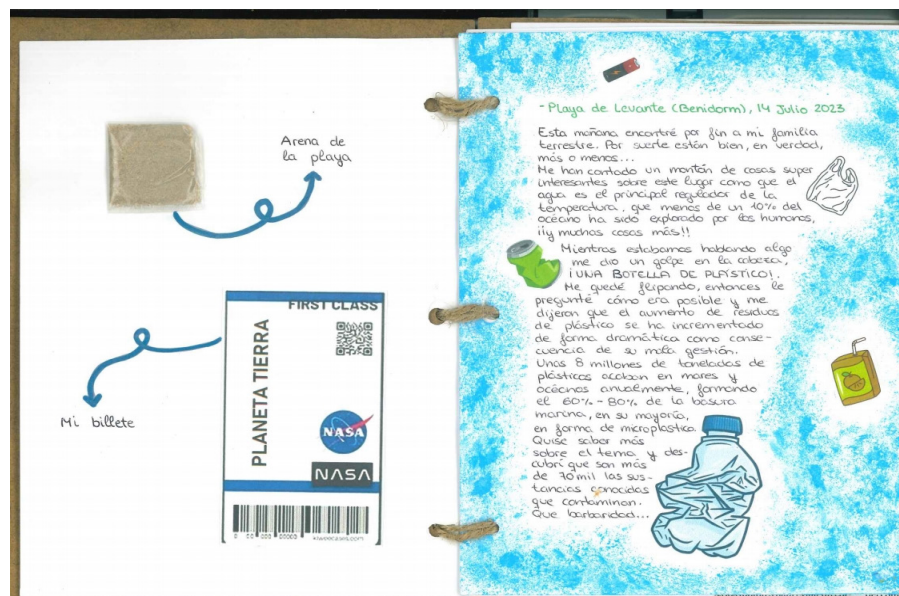 Arena de
la playa
FIRST CLASS
PLANETA TIERRA
NASA
NASA
Mi billete
- Playa de Levante (Benidorm), 14 Julio 2023
Esta mañana encontré por fin a mi familia
terrestre. Por suerte están bien, en verdad,
más o menos...
Me han contado un montón de cosas super
interesantes sobre este lugar como que el
agua es el principal regulador de la
temperatura, que menos de un 10% del
océano ha sido explorado por los humanos,
¡¡y muchas cosas más!!
Mientras estabamos hablando algo
me dio un golpe en la cabeza,
¡UNA BOTELLA DE PLÁSTICO!.
Me quedé flipando, entonces le
pregunté cómo era posible y me
dijeron que el aumento de residuos
de plástico se ha incrementado
de forma dramática como conse-
cuencia de su mala gestión.
Unas 8 millones de toneladas de
plásticos acaban en mares y
océanos anualmente, formando
el 60%-80% de la basura
marina, en su mayoría,
en forma de microplástico.
Quise saber más
sobre el tema y des-
cubrí que son más
de 70 mil las sus-
tancias conocidas
que contaminan.
Que barbaridad...